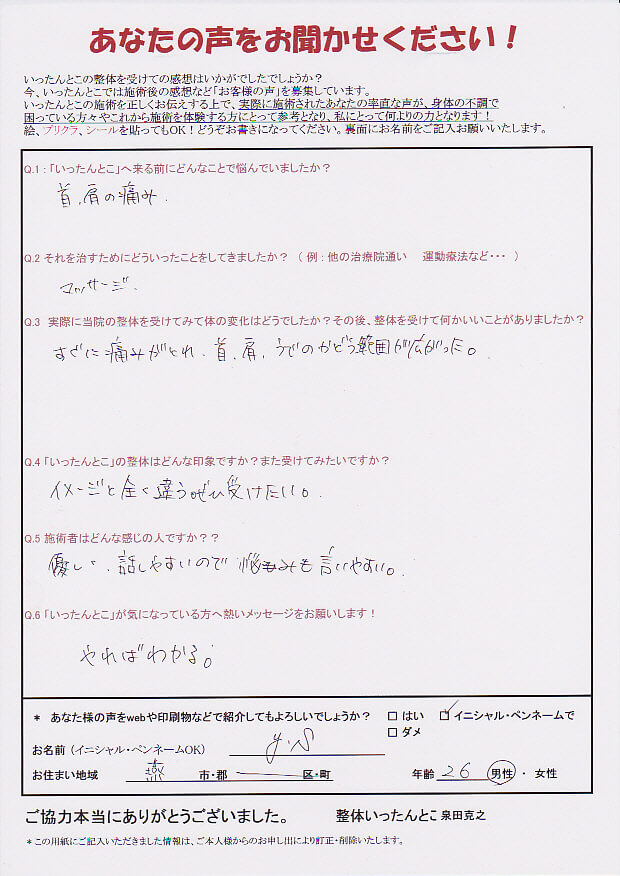 あなたの声をお聞かせください！
いったんとこの整体を受けての感想はいかがでしたでしょうか？
今、いったんとこでは施術後の感想など「お客様の声」を募集しています。
いったんとこの施術を正しくお伝えする上で、実際に施術されたあなたの率直な声が、身体の不調で
困っている方々やこれから施術を体験する方にとって参考となり、私にとって何よりの力となります！
絵、プリクラ、シールを貼ってもOK！どうぞお書きになってください。裏面にお名前をご記入お願いいたします。
Q.1：「いったんとこ」へ来る前にどんなことで悩んでいましたか？
首、肩の痛み．
Q.2 それを治すためにどういったことをしてきましたか？ （ 例：他の治療院通い　運動療法など・・・ ）
マッサージ．
Q.3 実際に当院の整体を受けてみて体の変化はどうでしたか？その後、整体を受けて何かいいことがありましたか？
すぐに痛みがとれ、首、肩、うでのかどう範囲が広がった。
Q.4 「いったんとこ」の整体はどんな印象ですか？また受けてみたいですか？
イメージと全く違うぜひ受けたい。
Q.5 施術者はどんな感じの人ですか？？
優しい、話しやすいので悩みも言いやすい。
Q.6 「いったんとこ」が気になっている方へ熱いメッセージをお願いします！
やればわかる。
＊ あなた様の声をwebや印刷物などで紹介してもよろしいでしょうか？ □ はい ☑ イニシャル・ペンネームで
□ ダメ
お名前（イニシャル・ペンネームOK） y.s
お住まい地域 燕 市・郡 区・町 年齢 26 男性 ・ 女性
ご協力本当にありがとうございました。 整体いったんとこ 泉田克之
＊この用紙にご記入いただきました情報は、ご本人様からのお申し出により訂正・削除いたします。